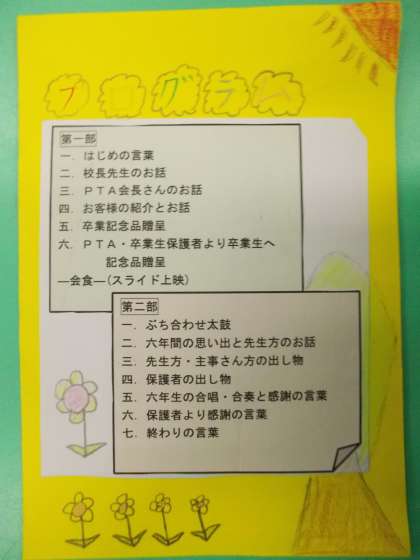 プログラム
第一部
一．はじめの言葉
二．校長先生のお話
三．ＰＴＡ会長さんのお話
四．お客様の紹介とお話
五．卒業記念品贈呈
六．ＰＴＡ・卒業生保護者より卒業生へ
記念品贈呈
―会食―(スライド上映)
第二部
一．ぶち合わせ太鼓
二．六年間の思い出と先生方のお話
三．先生方・主事さん方の出し物
四．保護者の出し物
五．六年生の合唱・合奏と感謝の言葉
六．保護者より感謝の言葉
七．終わりの言葉